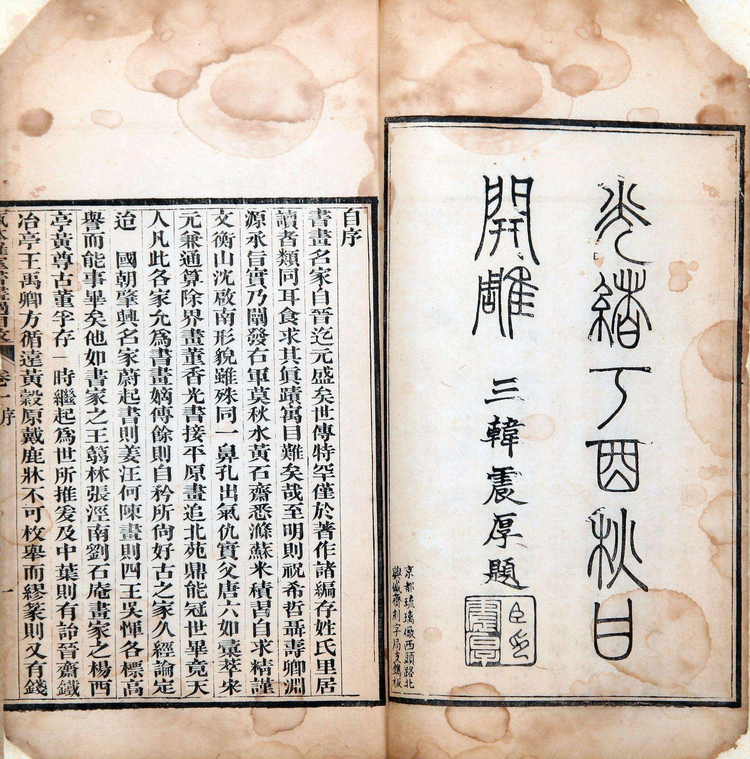 光緒丁酉秋日
開雕
三韓震厚題
京都琉璃廠西頭路北
興盛齋刻字局
自序
書畫名家自晉迄元盛矣世傳特罕僅於著作諸編存姓氏里居
讀者類同耳食求其眞蹟寓目難矣哉至明則祝希哲聶壽卿淵
源永旨實乃闡發右軍莫秋水黃石齋悉滌蘇米積習自求精謹
文衡山沈啟南形貌雖殊同一鼻孔出氣仇實父唐六如彙萃宋
元兼通算除界畫董香光書接平原畫追北苑鼎能冠世畢竟天
人凡此各家允爲書畫嫡傳餘則自矜所尙好古之家久經論定
迨 國朝肇興名家蔚起書則姜汪何陳畫則四王吳惲各標高
譽而能事畢矣他如書家之王翁林張涇南劉石庵畫家之楊西
亭黃尊古董孚存一時繼起爲世所推爰及中葉則有詥晉齋鐵
冶亭王禹卿方循遠黃穀原戴鹿牀不可枚舉而繆篆則又有錢
卷一序 一